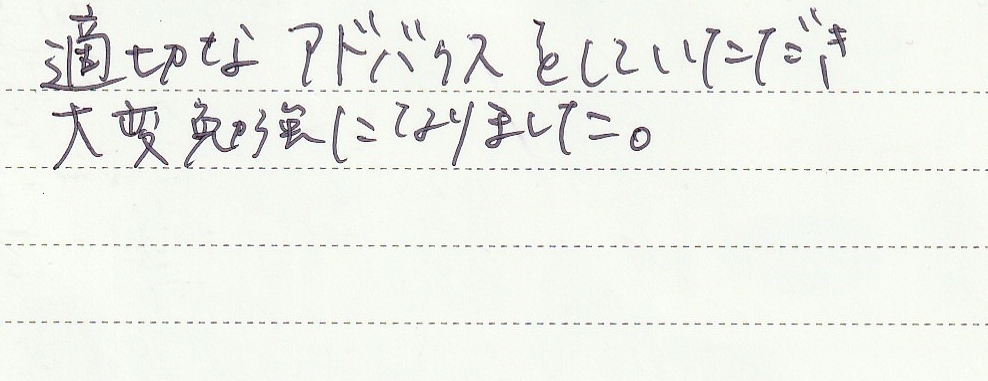 適切なアドバイスをしていただき
大変勉強になりました。